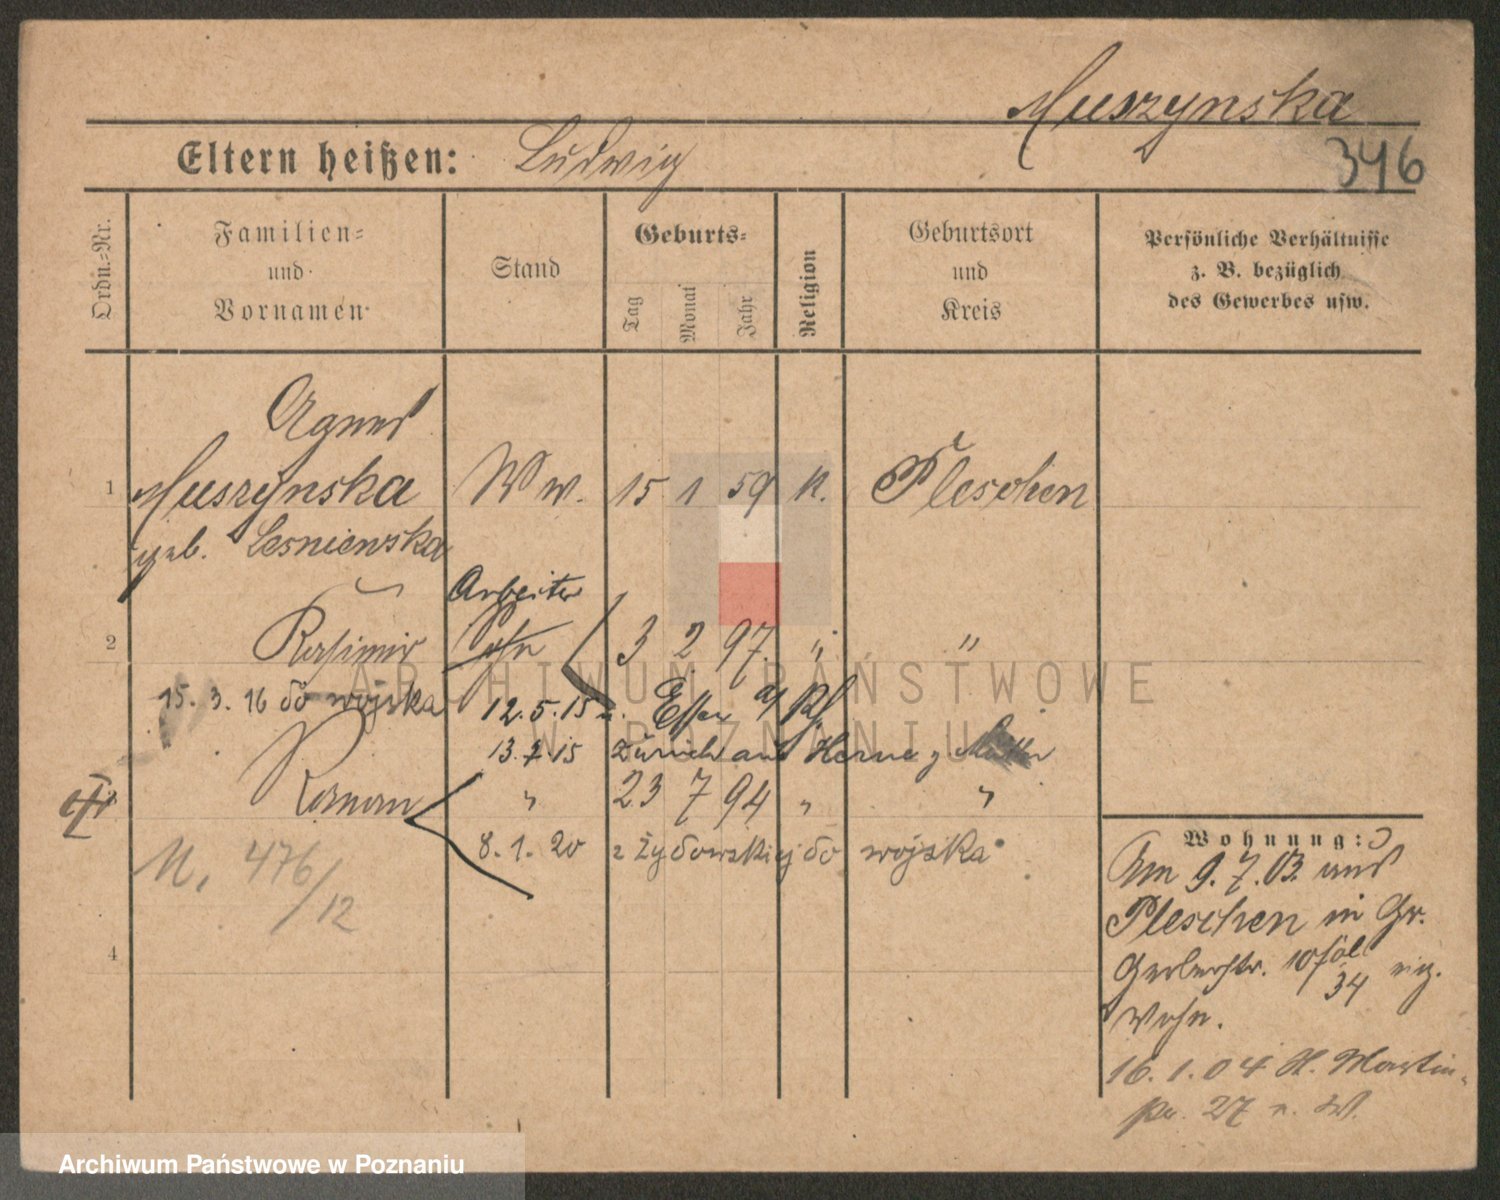 Muszynska
Eltern heißen: Ludwig
346
Ordn.-Nr.
Familien-
und
Vornamen
Stand
Geburts-
Tag
Monat
Jahr
Religion
Geburtsort
und
Kreis
Persönliche Verhältnisse
z. B. bezüglich
des Gewerbes usw.
Agnes
1 Muszynska Ww. 15 1 59 k. Pleschen
geb. Lesniewska
Arbeiter
2 Kasimir Sohn 3 2 97. " "
15. 3. 16 do wojska 12. 5. 15 n. Essen a/Rh
13. 7. 15 zurück aus Herne z Mutter
Roman " 23 7 94 " "
8. 1. 20 z Żydowskiej do wojska
M. 476/12
4
Wohnung:
Am 9. 7. 03. aus
Pleschen in Gr.
Gerberstr. 10
34 eig.
Wohn.
16. 1. 04 St. Martin-
27 n. W.
ARCHIWUM PAŃSTWOWE
W POZNANIU
Archiwum Państwowe w Poznaniu